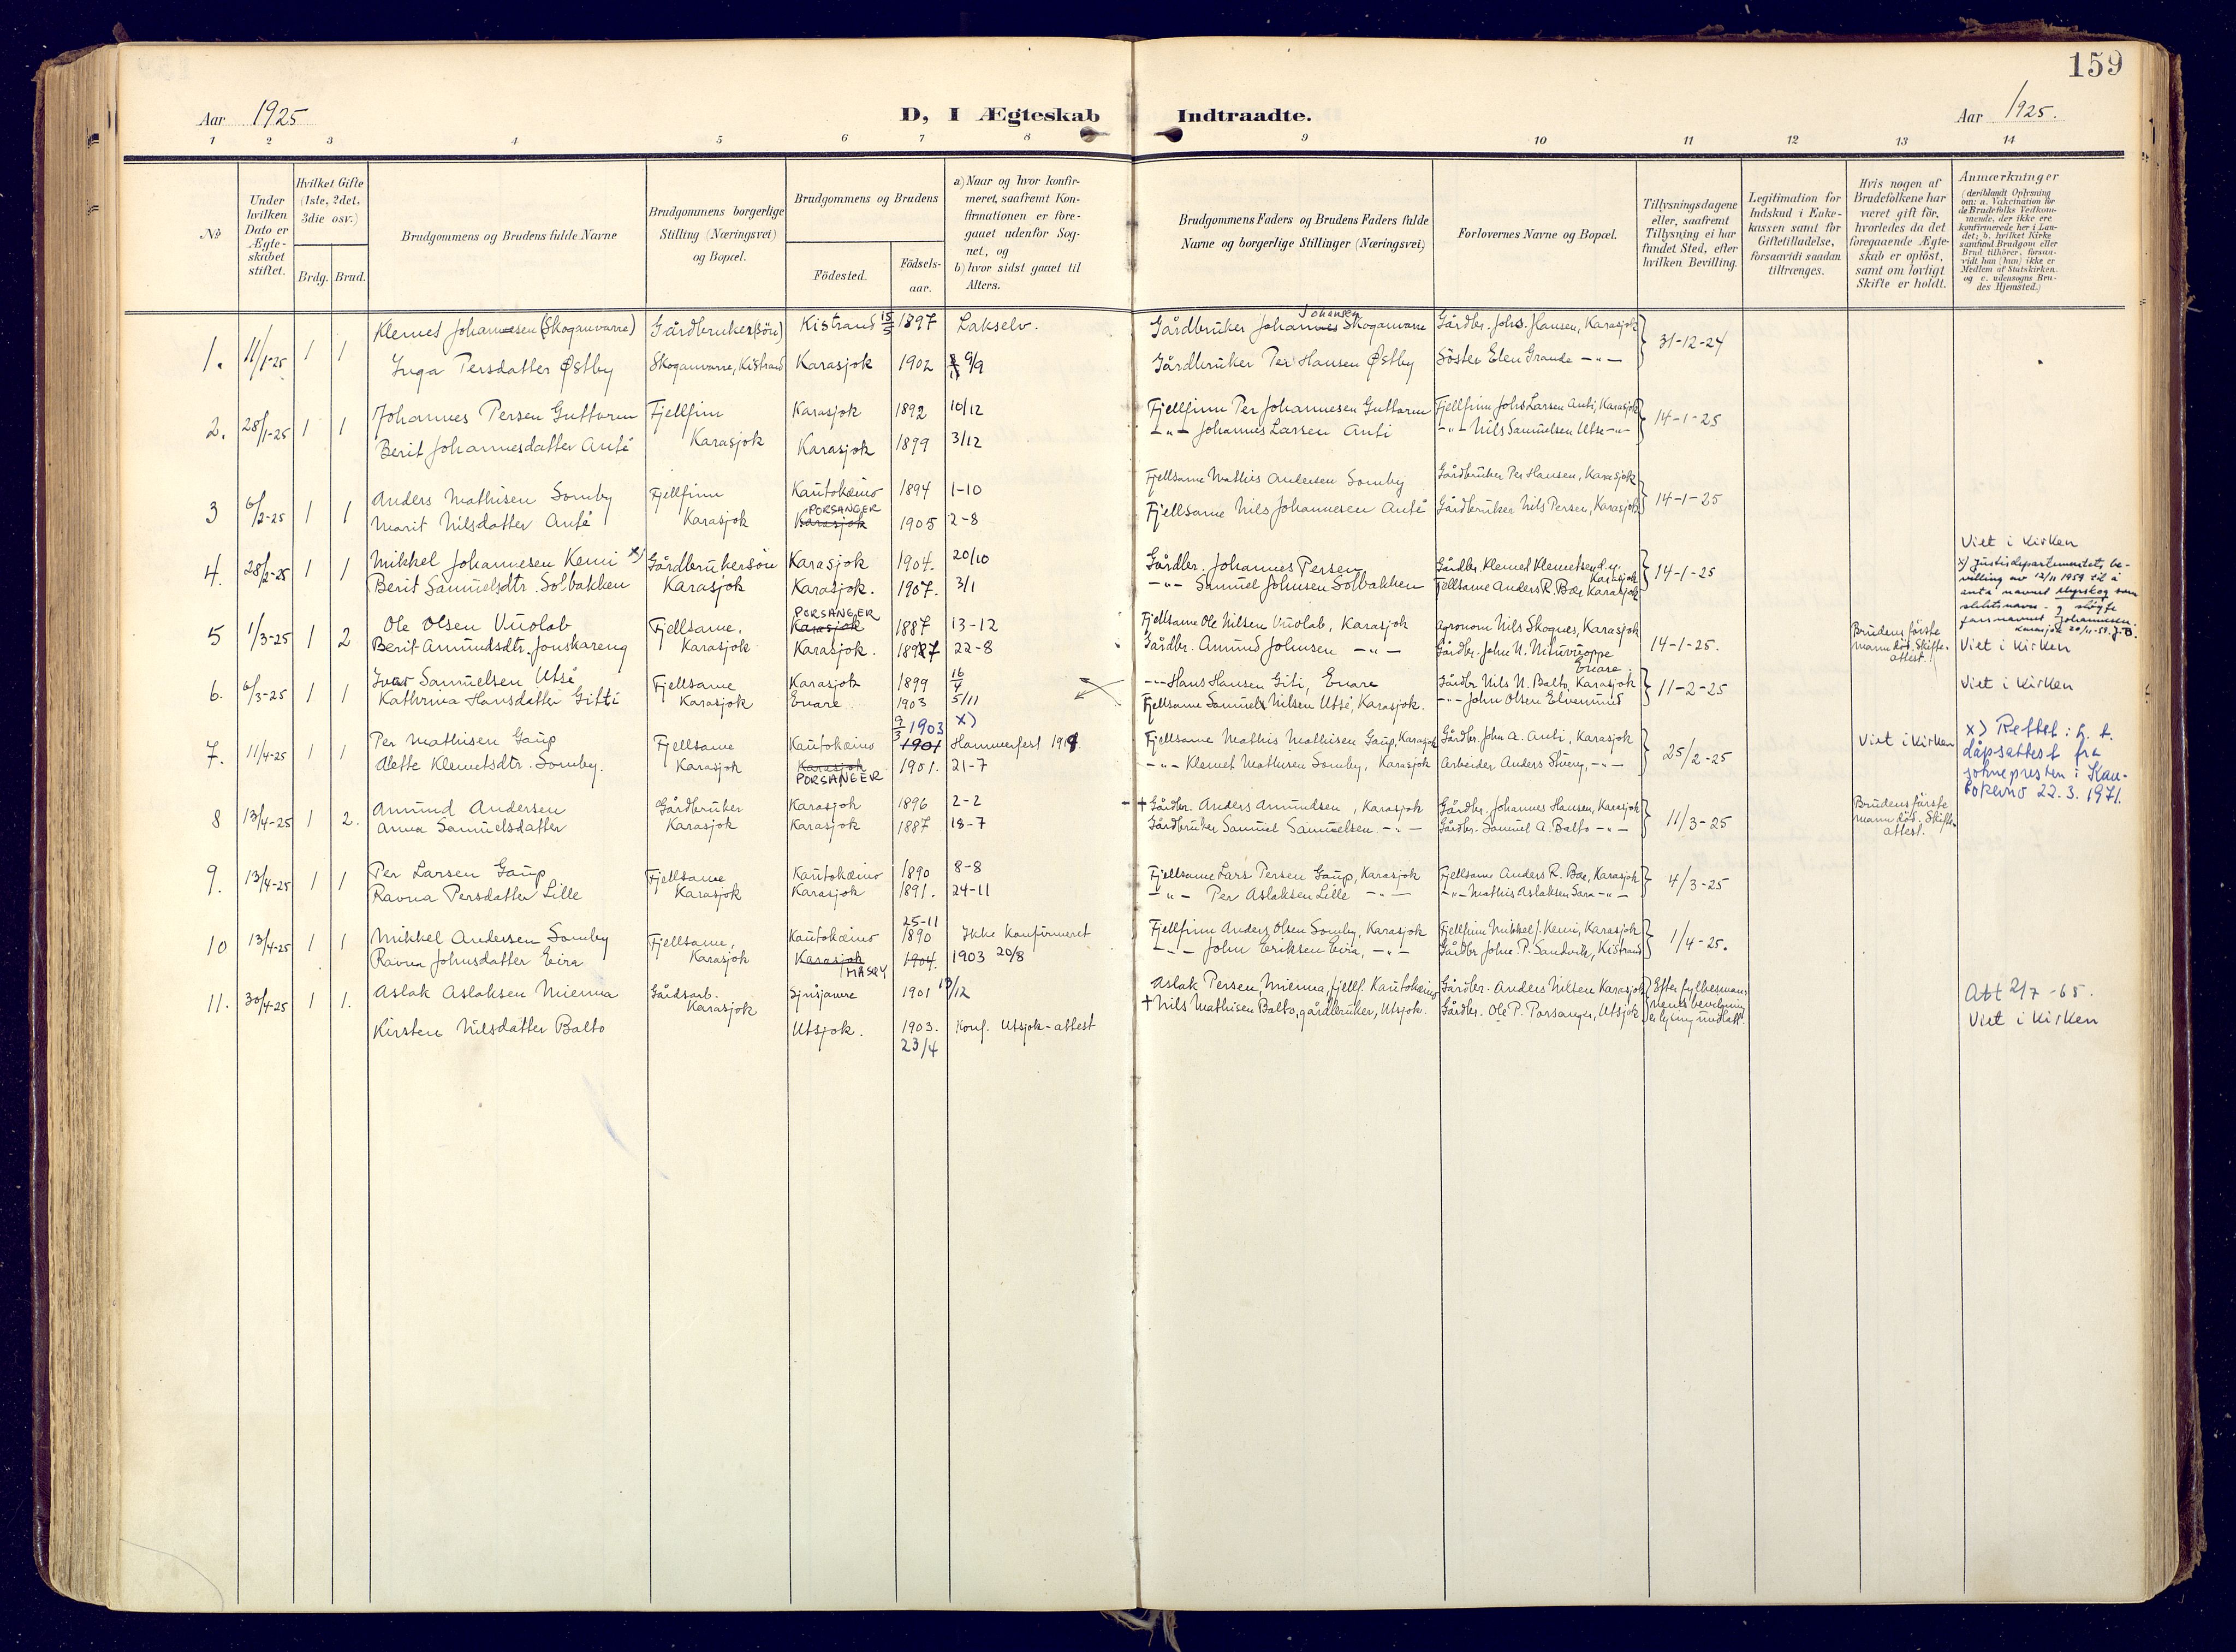 159
Aar 1925
D, I Ægteskab Indtraadte.
Aar 1925.
1 2 3 4 5 6 7 8 9 10 11 12 13 14
No
Under hvilken Dato er Ægte-skabet stiftet.
Hvilket Gifte (1ste, 2det, 3die osv.)
Brdg. Brud.
Brudgommens og Brudens fulde Navne
Brudgommens borgerlige Stilling (Næringsvei) og Bopæl.
Brudgommens og Brudens
Födested.
Födsels-aar.
a) Naar og hvor konfir-meret, saafremt Kon-firmationen er fore-gaaet udenfor Sog-net, og
b) hvor sidst gaaet til Alters.
Brudgommens Faders og Brudens Faders fulde Navne og borgerlige Stillinger (Næringsvei)
Forlovernes Navne og Bopæl.
Tillysningsdagene eller, saafremt Tillysning ei har fundet Sted, efter hvilken Bevilling.
Legitimation for Indskud i Enke-kassen samt for Giftetilladelse, forsaavidt saadan tiltrænges.
Hvis nogen af Brudefolkene har været gift för, hvorledes da det foregaaende Ægte-skab er oplöst, samt om lovligt Skifte er holdt.
Anmærkninger
(deriblandt Oplysning om: a. Vakcination for de Brudefolks Vedkom-mende, der ikke ere konfirmerede her i Lan-det; b. hvilket Kirke-samfund Brudgom eller Brud tilhörer, forsaa-vidt han (hun) ikke er Medlem af Statskirken. og c. udensogns Bru-des Hjemsted.)
1. 11/1-25 1 1 Klemet Johannesen (Skoganvarre) Gårdbruker(sön) Kistrand 15/5 1897 Lakselv. Gårdbruker Johannes Johansen Skoganvarre Gårdbr. Johs. Hansen, Karasjok 31-12-24
Inga Persdatter Østby Skoganvarre, Kistrand Karasjok 1902 9/9 Gårdbruker Per Hansen Østby Söster Elen Grande -"-
2. 28/1-25 1 1 Johannes Persen Guttorm Fjellfinn Karasjok 1892 10/12 Fjellfinn Per Johannesen Guttorm Fjellfinn Johs Larsen Anti, Karasjok 14-1-25
Berit Johannesdatter Anti Karasjok Karasjok 1899 3/12 -"- Johannes Larsen Anti -"- Nils Samuelsen Utse -"-
3 6/2-25 1 1 Anders Mathisen Somby Fjellfinn Kautokeino 1894 1-10 Fjellsame Mathis Andersen Somby Gårdbruker Per Hansen, Karasjok 14-1-25
Marit Nilsdatter Anti Karasjok PORSANGER Karasjok 1905 2-8 Fjellsame Nils Johannesen Anti Gårdbruker Nils Persen, Karasjok
4. 28/2-25 1 1 Mikkel Johannesen Kemi x) Gårdbrukersön Karasjok 1904. 20/10 Gårdbr. Johannes Persen Gårdbr. Klemet Klemetsen d.y. Karasjok 14-1-25 Viet i Kirken
Berit Samuelsdtr. Solbakken Karasjok Karasjok. 1907. 3/1 -"- Samuel Johnsen Solbakken Fjellsame Anders R. Bær Karasjok
x) Justisdepartementets be-
villing av 12/11 1959 til å
anta navnet Myrskog som
slektsnavn - og sløyfe
farsnavnet Johannesen.
Karasjok 20/11-59.
5 1/3-25 1 2 Ole Olsen Vuolab Fjellsame, PORSANGER Karasjok 1887 13-12 Fjellsame Ole Nilsen Vuolab, Karasjok Agronom Nils Skognes, Karasjok 14-1-25. Brudens förste mann död. Skifte-attest.
Berit Amundsdtr. Jonskareng Karasjok Karasjok. 1897 22-8 Gårdbr. Amund Johnsen -"- Gårdbr. John N. Niuvuoppe Viet i Kirken
6. 6/3-25 1 1 Ivar Samuelsen Utsi Fjellsame Karasjok 1899 16/4 -"- Hans Hansen Giti, Enare Enare Gårdbr Nils N. Balto, Karasjok 11-2-25 Viet i Kirken
Kathrina Hansdatter Gitti Karasjok Enare. 1903 5/11 Fjellsame Samuel Nilsen Utsi, Karasjok. -"- John Olsen Elvemund
7. 11/4-25 1 1 Per Mathisen Gaup Fjellsame Kautokeino 9/3 1903 1901 x) Hammerfest 1919. Fjellsame Mathis Mathisen Gaup, Karasjok Gårdbr. John A. Anti, Karasjok 25/2-25 Viet i Kirken
Alette Klemetsdtr. Somby. Karasjok Karasjok PORSANGER 1901. 21-7 -"- Klemet Mathisen Somby, Karasjok Arbeider Anders -"-
x) Rettet i h. t.
dåpsattest fra
soknepresten i Kau-
tokeino 22.3.1971.
8 13/4-25 1 2. Amund Andersen Gårdbruker Karasjok 1896 2-2 + Gårdbr. Anders Amundsen, Karasjok Gårdbr. Johannes Hansen, Karasjok 11/3-25 Brudens förste mann död. Skifte-attest.
Anna Samuelsdatter Karasjok Karasjok 1887 18-7 Gårdbruker Samuel Samuelsen -"- Gårdbr. Samuel A. Balto -"-
9. 13/4-25 1 1 Per Larsen Gaup Fjellsame Kautokeino 1890 8-8 Fjellsame Lars Persen Gaup, Karasjok Fjellsame Anders R. Bær, Karasjok 4/3-25
Ravna Persdatter Lille Karasjok Karasjok 1891. 24-11 -"- Per Aslaksen Lille -"- -"- Mathis Aslaksen Sara -"-
10 13/4-25 1 1 Mikkel Andersen Somby Fjellsame, Kautokeino 25-11 1890 Ikke konfirmeret Fjellfinn Anders Olsen Somby, Karasjok Fjellfinn Mikkel J. Kemi, Karasjok 1/4-25.
Ravna Johnsdatter Eira Karasjok Karasjok MÅSØY 1904. 1903 20/8 -"- John Eriksen Eira, -"- Gårdbr John P. Sandvik, Kistrand
11. 30/4-25 1 1. Aslak Aslaksen Mienna Gårdsarb. Karasjok 1901 13/12 Aslak Persen Mienna, fjellf. Kautokeino Gårdbr. Anders Nilsen Karasjok Efter fylkesmannens bevilgning Att 2/7-65.
Kirsten Nilsdatter Balto Utsjok. 1903. 23/4 Konf. Utsjok-attest + Nils Mathisen Balto, gårdbruker, Utsjok. Gårdbr. Ole P. Porsanger, Utsjok Viet i Kirken